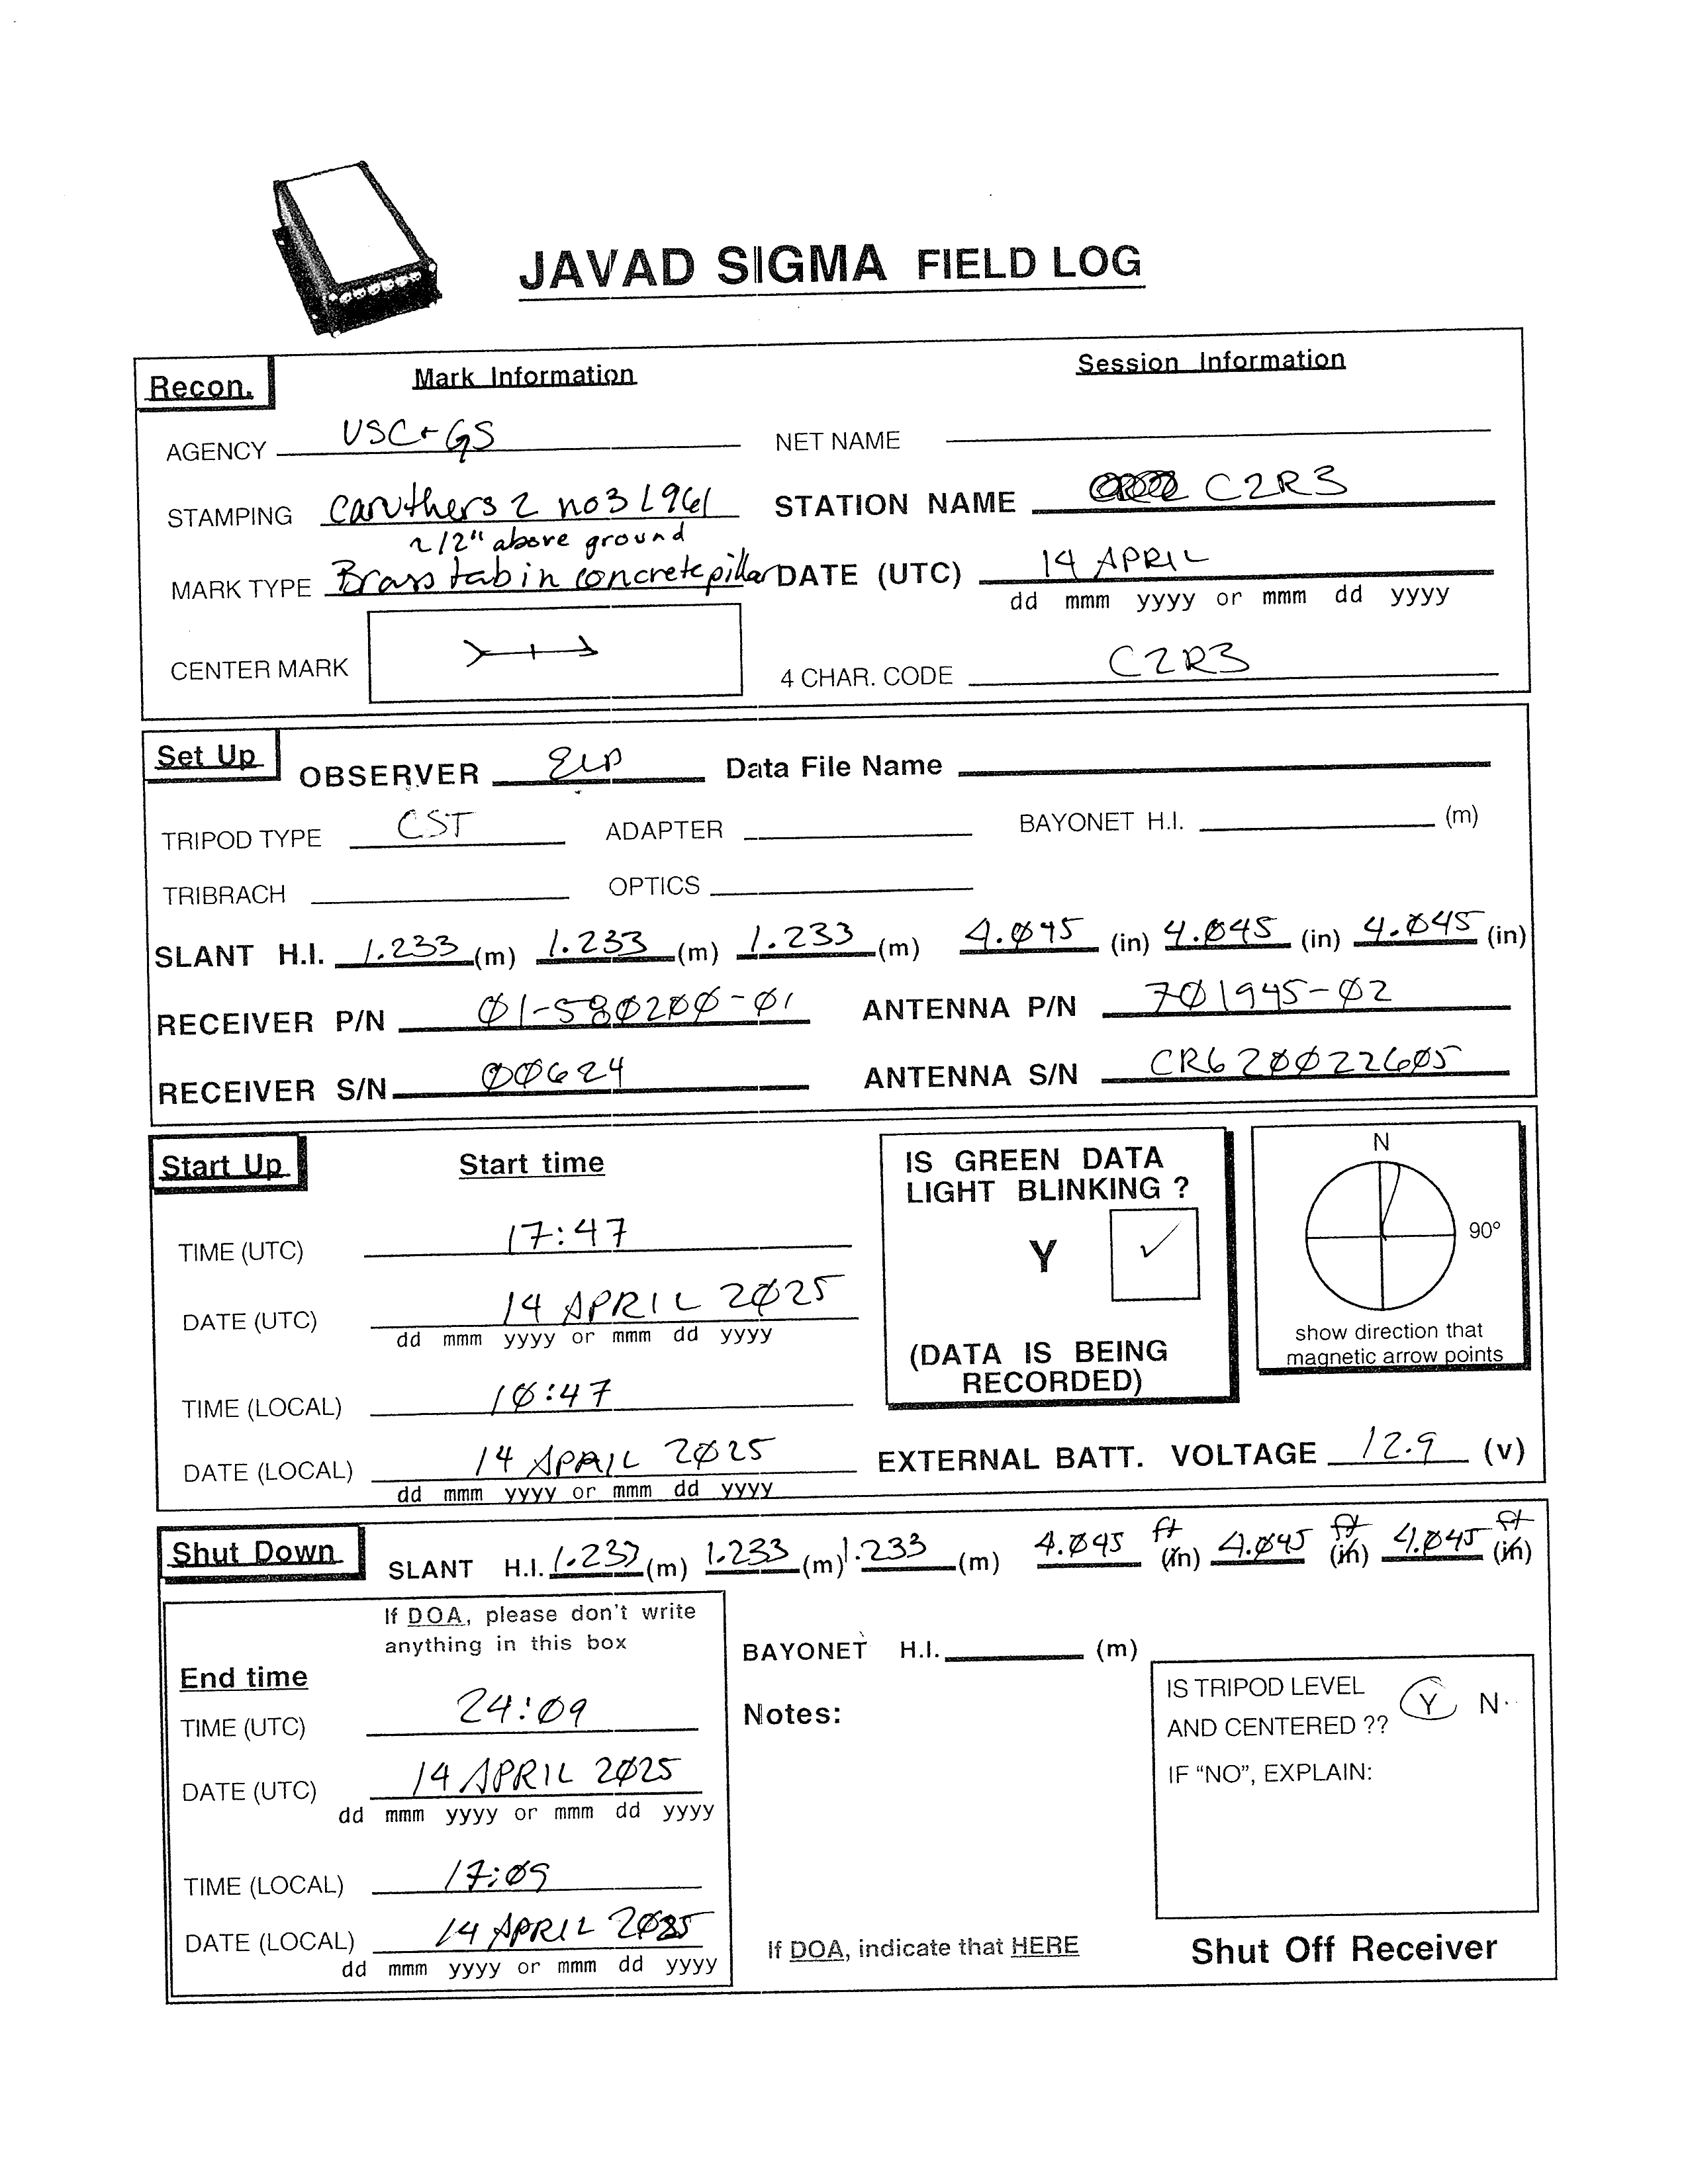 JAVAD SIGMA FIELD LOG
Recon. Mark Information Session Information
AGENCY USC+GS NET NAME
STAMPING caruthers 2 no3 1961 STATION NAME C2R3
~1/2" above ground
MARK TYPE Brass tab in concrete pillar DATE (UTC) 14 APRIL
dd mmm yyyy or mmm dd yyyy
CENTER MARK 4 CHAR. CODE C2R3
Set Up OBSERVER ELP Data File Name
TRIPOD TYPE CST ADAPTER BAYONET H.I. (m)
TRIBRACH OPTICS
SLANT H.I. 1.233 (m) 1.233 (m) 1.233 (m) 4.045 (in) 4.045 (in) 4.045 (in)
RECEIVER P/N 01-580200-01 ANTENNA P/N 701945-02
RECEIVER S/N 00624 ANTENNA S/N CR620022605
Start Up Start time
IS GREEN DATA
LIGHT BLINKING ?
N
90°
TIME (UTC) 17:47
Y ✓
DATE (UTC) 14 APRIL 2025
dd mmm yyyy or mmm dd yyyy
show direction that
magnetic arrow points
(DATA IS BEING
RECORDED)
TIME (LOCAL) 10:47
DATE (LOCAL) 14 APRIL 2025 EXTERNAL BATT. VOLTAGE 12.9 (v)
dd mmm yyyy or mmm dd yyyy
Shut Down SLANT H.I. 1.233 (m) 1.233 (m) 1.233 (m) 4.045 ft (in) 4.045 ft (in) 4.045 ft (in)
If DOA, please don't write
anything in this box
BAYONET H.I. (m)
End time
TIME (UTC) 24:09
Notes:
IS TRIPOD LEVEL
AND CENTERED ?? Y N
IF "NO", EXPLAIN:
DATE (UTC) 14 APRIL 2025
dd mmm yyyy or mmm dd yyyy
TIME (LOCAL) 17:09
DATE (LOCAL) 14 APRIL 2025
dd mmm yyyy or mmm dd yyyy
If DOA, indicate that HERE
Shut Off Receiver